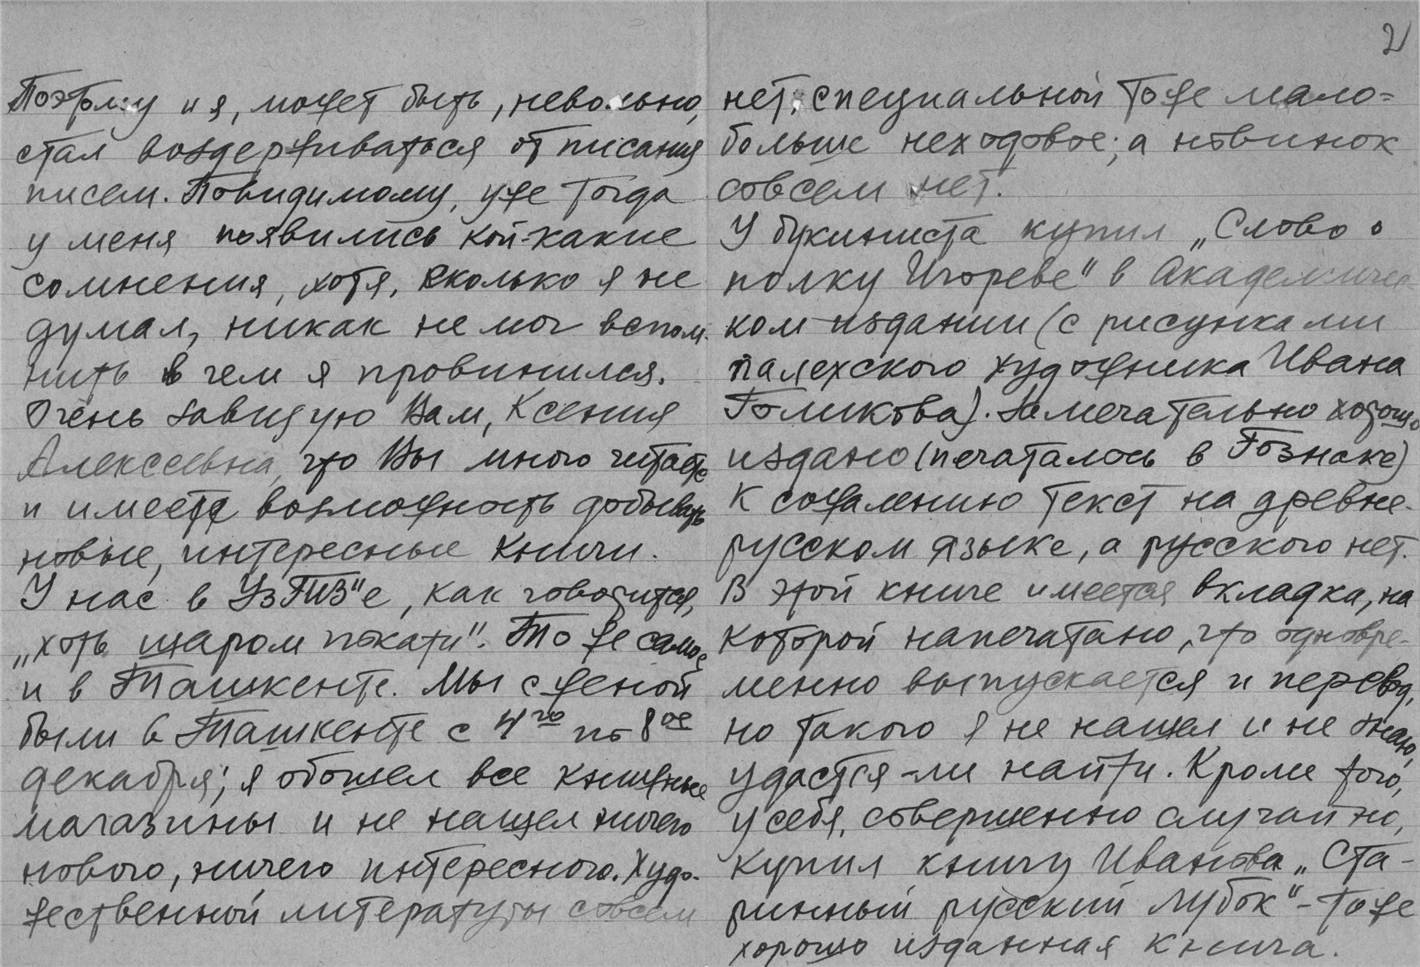 2
Поэтому и я, может быть, невольно,
стал воздерживаться от писания
писем. Повидимому, уже тогда
у меня появились кой-какие
сомнения, хотя, сколько я не
думал, никак не мог вспом-
нить в чем я провинился.
Очень завидую Вам, Ксения
Алексеевна, что Вы много читаете
и имеете возможность добывать
новые, интересные книги.
У нас в УзГИЗ"е, как говорится,
„хоть шаром покати". То же самое
и в Ташкенте. Мы с женой
были в Ташкенте с 4го по 8ое
декабря; я обошел все книжные
магазины и не нашел ничего
нового, ничего интересного. Худо-
жественной литературы совсем
нет, специальной тоже мало =
больше неходовое; а новинок
совсем нет.
У букиниста купил „Слово о
полку Игореве" в Академичес
ком издании (с рисунками
палехского художника Ивана
Голикова). Замечательно хорошо
издано (печаталось в Гознаке)
К сожалению текст на древне-
русском языке, а русского нет.
В этой книге имеется вкладка, на
которой напечатано, что одновре-
менно выпускается и перевод,
но такого я не нашел и не знаю,
удастся-ли найти. Кроме того,
у себя, совершенно случайно,
купил книгу Иванова „Ста-
ринный русский лубок" - тоже
хорошо изданная книга.